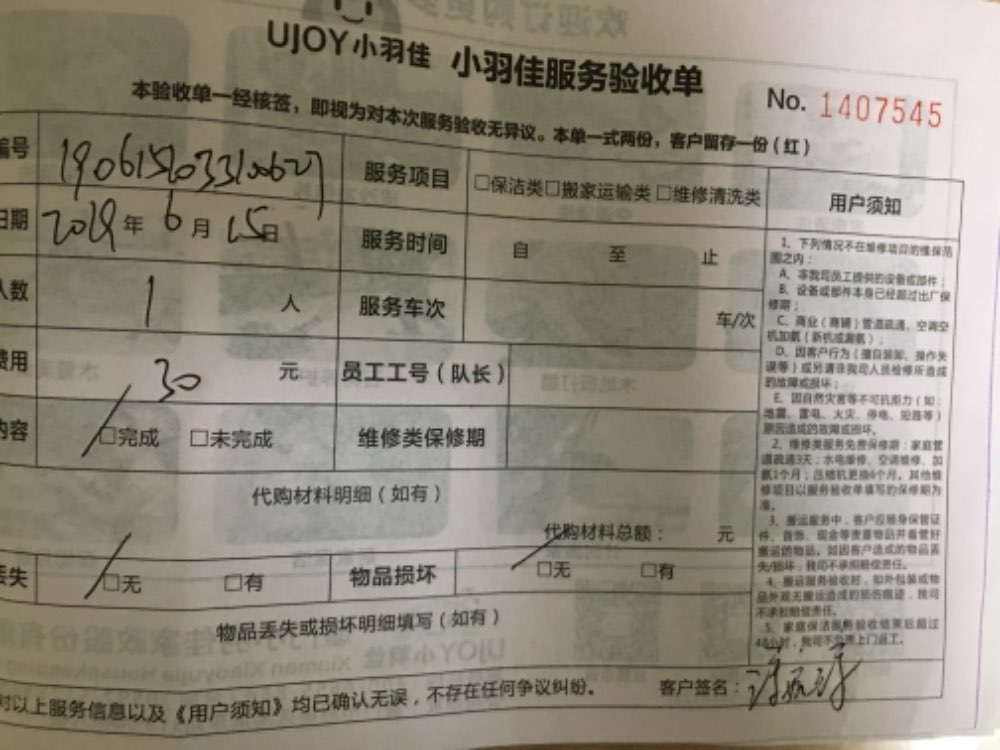 UJOY小羽佳 小羽佳服务验收单
No. 1407545
本验收单一经核签，即视为对本次服务验收无异议。本单一式两份，客户留存一份（红）
编号 服务项目 □保洁类□搬家运输类 □维修清洗类
日期 2019年6月15日 服务时间 自 至 止
人数 1 人 服务车次 车/次
费用 30 元 员工工号（队长）
内容 □完成 □未完成 维修类保修期
代购材料明细（如有）
代购材料总额： 元
丢失 □无 □有 物品损坏 □无 □有
物品丢失或损坏明细填写（如有）
对以上服务信息以及《用户须知》均已确认无误，不存在任何争议纠纷。 客户签名：
用户须知
1、下列情况不在维修项目的维保范
围之内：
A、非我司员工提供的设备或部件；
B、设备或部件本身已经超过出厂保
修期；
C、商业（商铺）管道疏通、空调空
机加氨（新机或漏氨）；
D、因客户行为（擅自装卸、操作失
误等）或另请非我司人员检修所造成
的故障或损坏；
E、因自然灾害等不可抗拒力（如：
地震、雷电、火灾、停电、短路等）
原因造成的故障或损坏。
2、维修类服务免费保修期：家庭管
道疏通3天；水电维修、空调维修、加
氨1个月；压缩机更换6个月。其他维
修项目以服务验收单填写的保修期为
准。
3、搬运服务中，客户应随身保管证
件、首饰、现金等贵重物品并看管好
搬运的物品。如因客户造成的物品丢
失/损坏，我司不承担赔偿责任。
4、搬运服务验收时，如外包装或物
品外观无搬运造成的损伤痕迹，我司
不承担赔偿责任。
5、家庭保洁服务验收结束后超过
48小时，我司不负责上门返工。